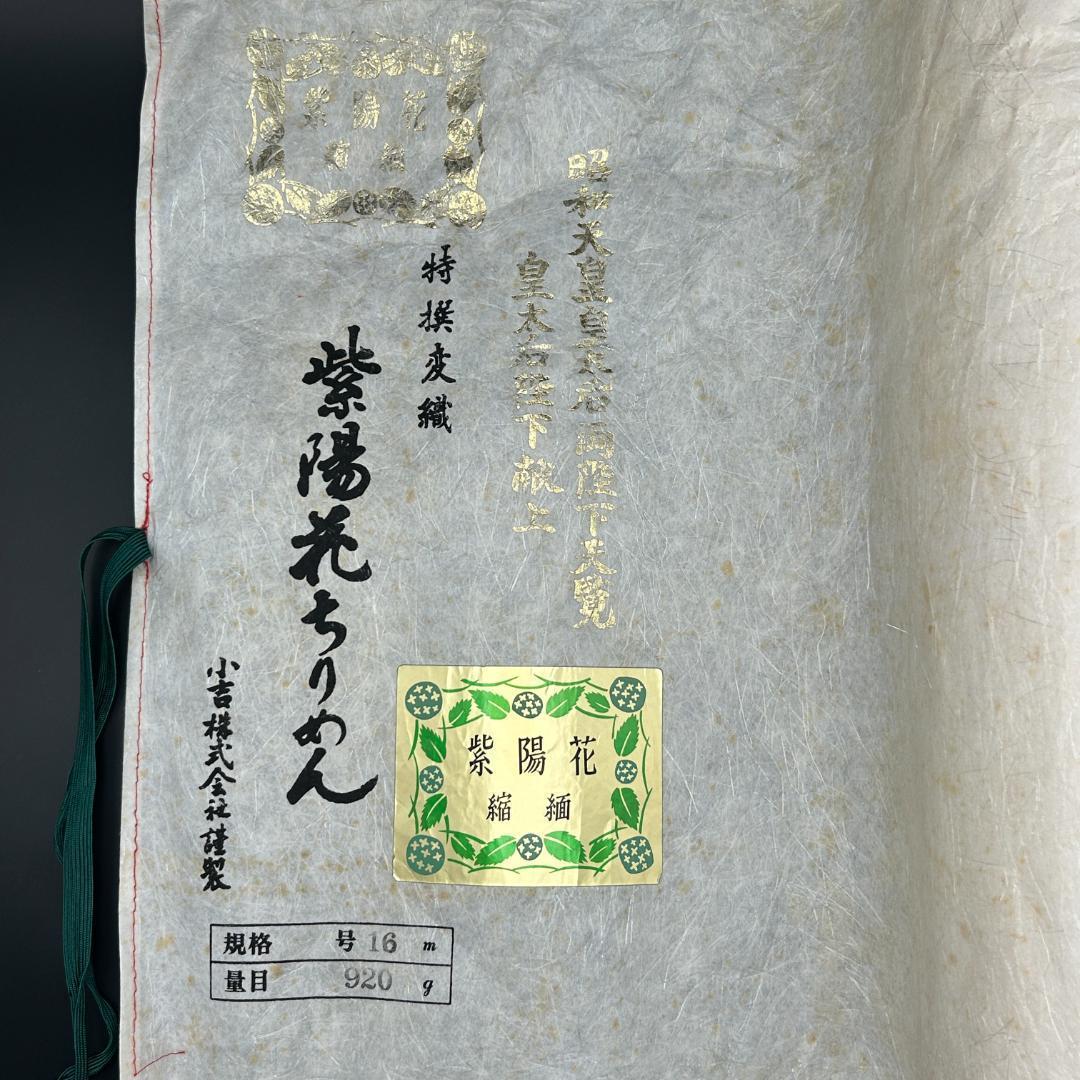 昭和天皇皇太后両陛下天覧
皇太后陛下献上
紫陽花
縮緬
特撰変織
紫陽花ちりめん
小吉株式会社謹製
紫陽花
縮緬
規格 号 16 m
量目 920 g